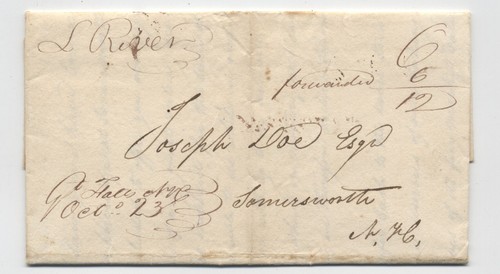 L River
6
forwarded 6
12
Joseph Doe Esqr
Gt Falls N.H.
Octo 23
Somersworth
N. H.